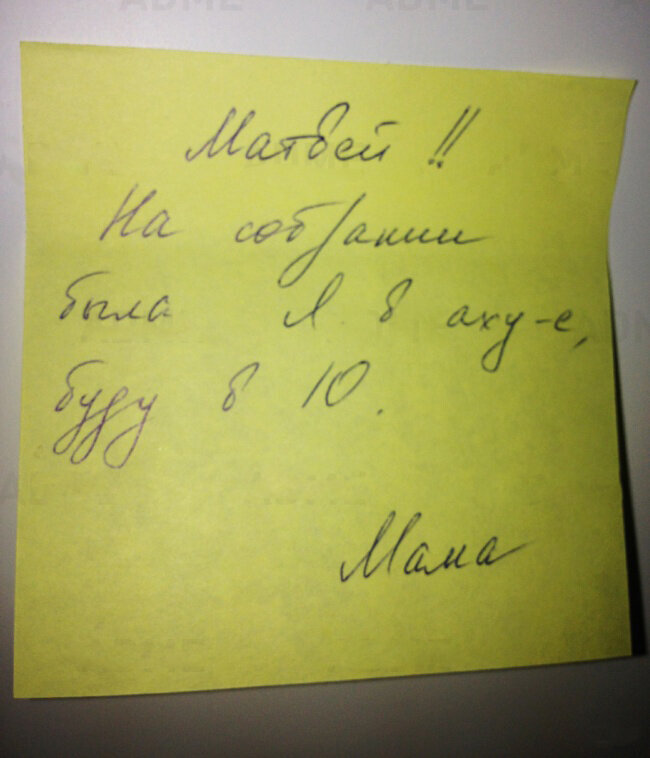 ADME
Матвей !!
На собрании
была Я в аху-е,
буду в 10.
Мама